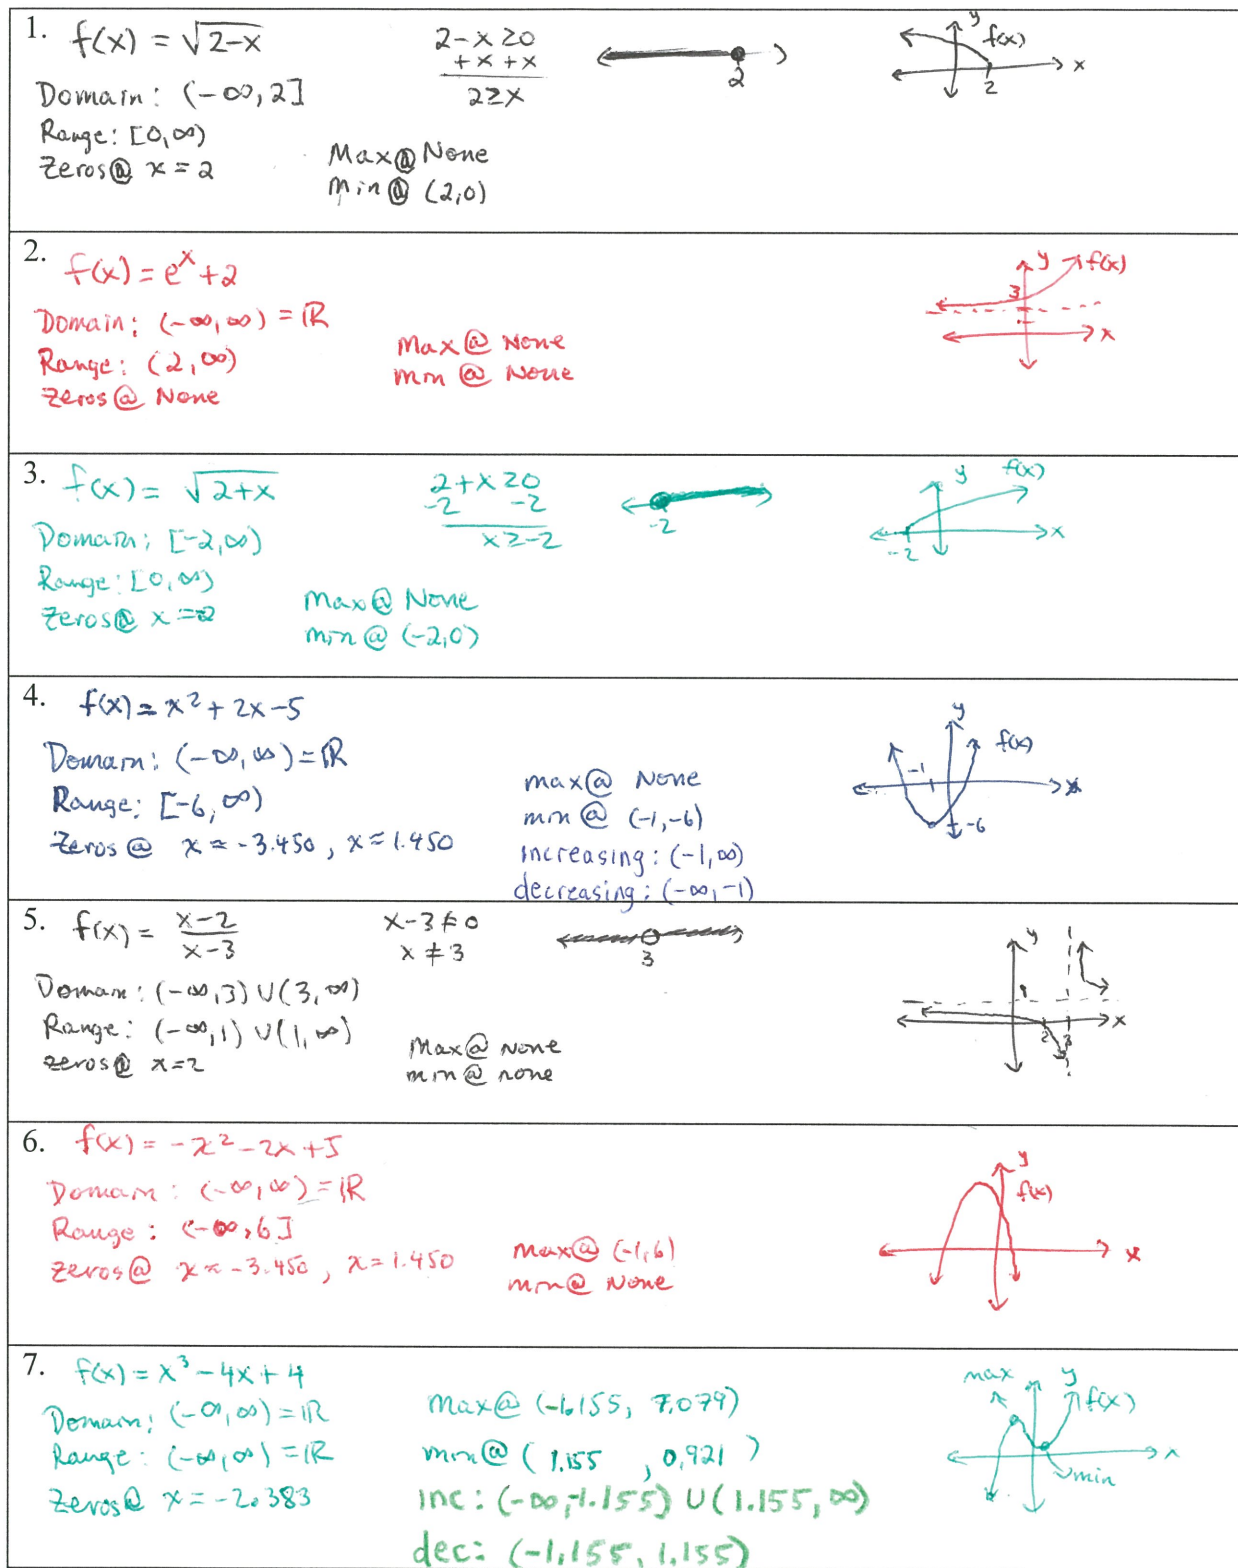 1. f(x) = √2-x
2-x≥0
+x +x
2≥x
2
y
f(x)
x
2
Domain: (-∞, 2]
Range: [0, ∞)
Zeros@ x = 2
Max@ None
Min@ (2,0)
2. f(x) = e^x + 2
y
f(x)
3
x
Domain: (-∞, ∞) = ℝ
Range: (2, ∞)
Zeros@ None
Max@ None
min @ None
3. f(x) = √2+x
2+x≥0
-2 -2
x≥-2
-2
y
f(x)
x
-2
Domain: [-2, ∞)
Range: [0, ∞)
Zeros@ x = -2
Max@ None
min@ (-2,0)
4. f(x) = x² + 2x - 5
y
f(x)
-1
x
-6
Domain: (-∞, ∞) = ℝ
Range: [-6, ∞)
Zeros @ x ≈ -3.450, x ≈ 1.450
max@ None
min @ (-1,-6)
increasing: (-1, ∞)
decreasing: (-∞, -1)
5. f(x) = x-2 / x-3
x-3≠0
x≠3
3
y
x
2 3
Domain: (-∞, 3) ∪ (3, ∞)
Range: (-∞, 1) ∪ (1, ∞)
zeros@ x=2
Max@ None
min@ none
6. f(x) = -x² - 2x + 5
y
f(x)
x
Domain: (-∞, ∞) = ℝ
Range: (-∞, 6]
zeros@ x ≈ -3.450, x = 1.450
max@ (-1,6)
min@ None
7. f(x) = x³ - 4x + 4
max
y
f(x)
x
min
Domain: (-∞, ∞) = ℝ
Range: (-∞, ∞) = ℝ
Zeros@ x = -2.383
Max@ (-1.155, 7.079)
min@ (1.155, 0.921)
inc: (-∞, -1.155) ∪ (1.155, ∞)
dec: (-1.155, 1.155)